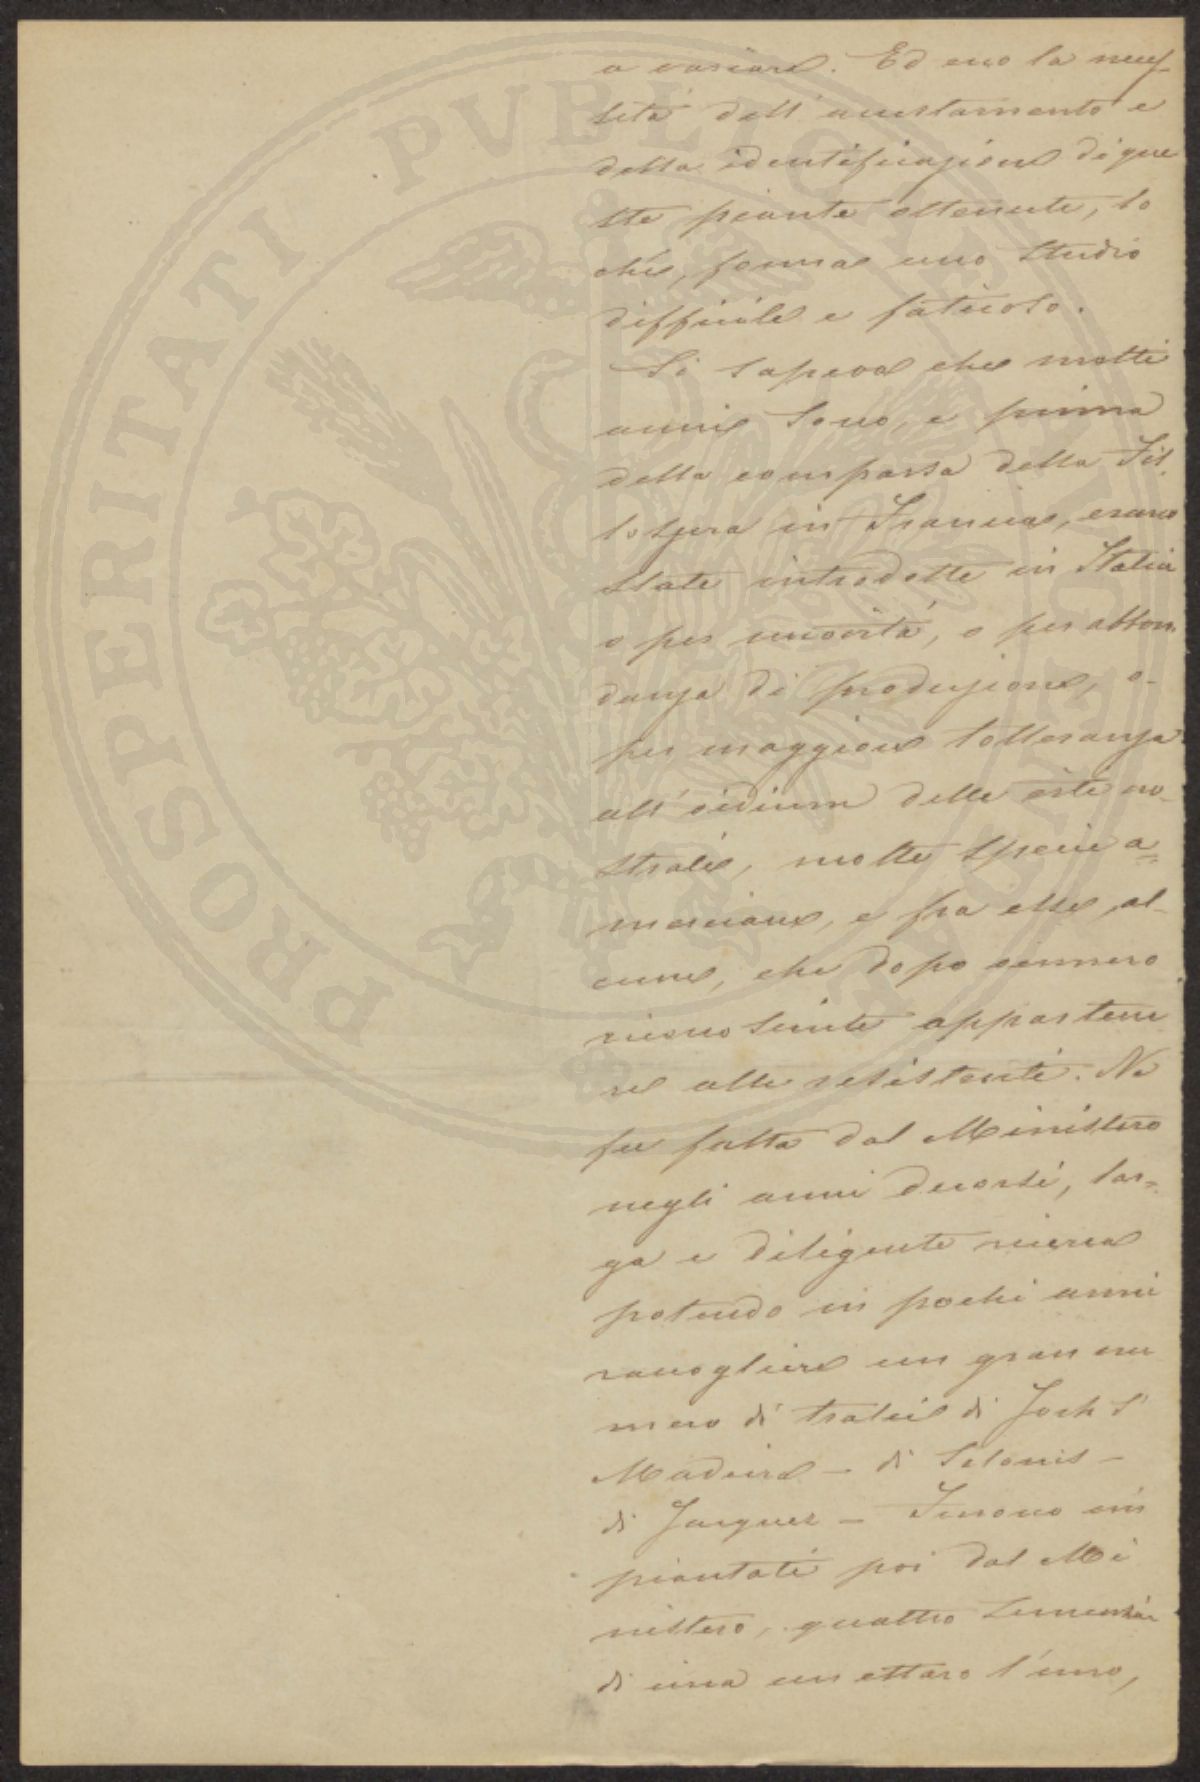 a variare. Ed ecco la neces-
sità dell'accertamento e
della identificazione di que
ste piante ottenute, lo
chè, forma uno studio
difficile e faticoso.
Si sapeva che molti
anni sono, e prima
della comparsa della Fil-
lossera in Francia, erano
state introdotte in Italia
o per curiosità, o per abbon
danza di produzione, o
per maggiore tolleranza
all'oidium delle viti no-
strali, molte specie a=
mericane, e fra esse, al-
cune, che dopo vennero
riconosciute appartene
re alle resistenti. Ne
fu fatta dal Ministero
negli anni decorsi, lar=
ga e diligente ricerca
potendo in pochi anni
raccogliere un gran nu
mero di tralci di York's
Madeira - di Solonis -
di Jacquez - Furono im
piantati poi dal Mi
nistero, quattro semenzai
di circa un ettaro l'uno,
PROSPERITATI PVBLICAE